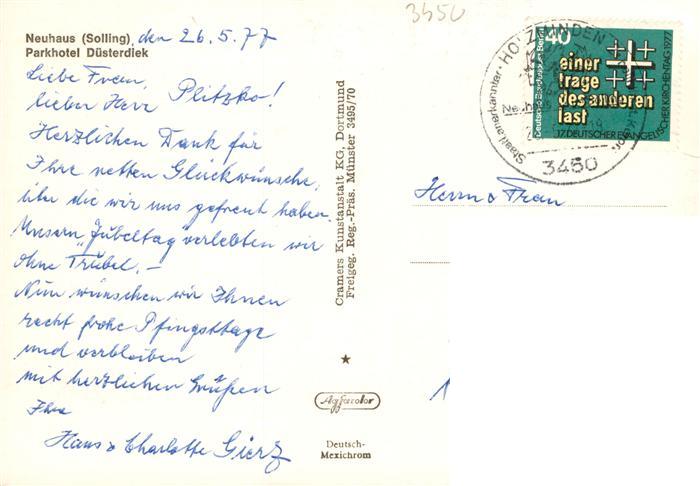 Neuhaus (Solling), den 26.5.77
Parkhotel Düsterdiek
Liebe Frau,
lieber Herr Plitzko!
Herzlichen Dank für
Ihre netten Glückwünsche,
über die wir uns gefreut haben.
Unsern „Jubeltag" verlebten wir
ohne Trubel. –
Nun wünschen wir Ihnen
recht frohe Pfingsttage
und verbleiben
mit herzlichen Grüßen
Ihre
Hans & Charlotte Gierz
Cramers Kunstanstalt KG, Dortmund
Freigeg. Reg.-Präs. Münster 3495/70
Agfacolor
Deutsch-
Mexichrom
3450
HOLZMINDEN
Staatl. anerkannter
3450
40
Deutsche Bundespost Berlin
einer
trage
des anderen
last
17. DEUTSCHER EVANGELISCHER KIRCHENTAG 1977
Herrn & Frau